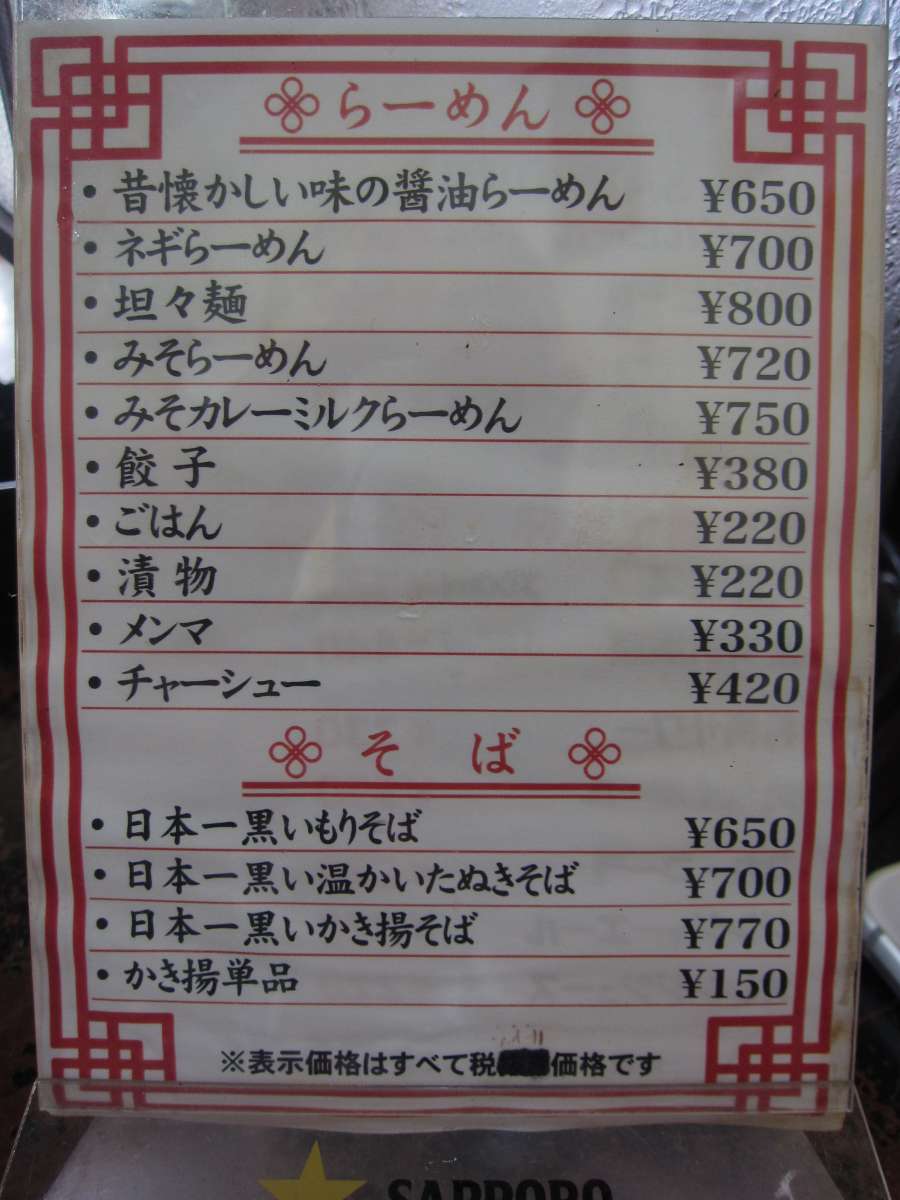 らーめん
・昔懐かしい味の醤油らーめん ¥650
・ネギらーめん ¥700
・坦々麺 ¥800
・みそらーめん ¥720
・みそカレーミルクらーめん ¥750
・餃子 ¥380
・ごはん ¥220
・漬物 ¥220
・メンマ ¥330
・チャーシュー ¥420
そば
・日本一黒いもりそば ¥650
・日本一黒い温かいたぬきそば ¥700
・日本一黒いかき揚そば ¥770
・かき揚単品 ¥150
※表示価格はすべて税価格です
SAPPORO